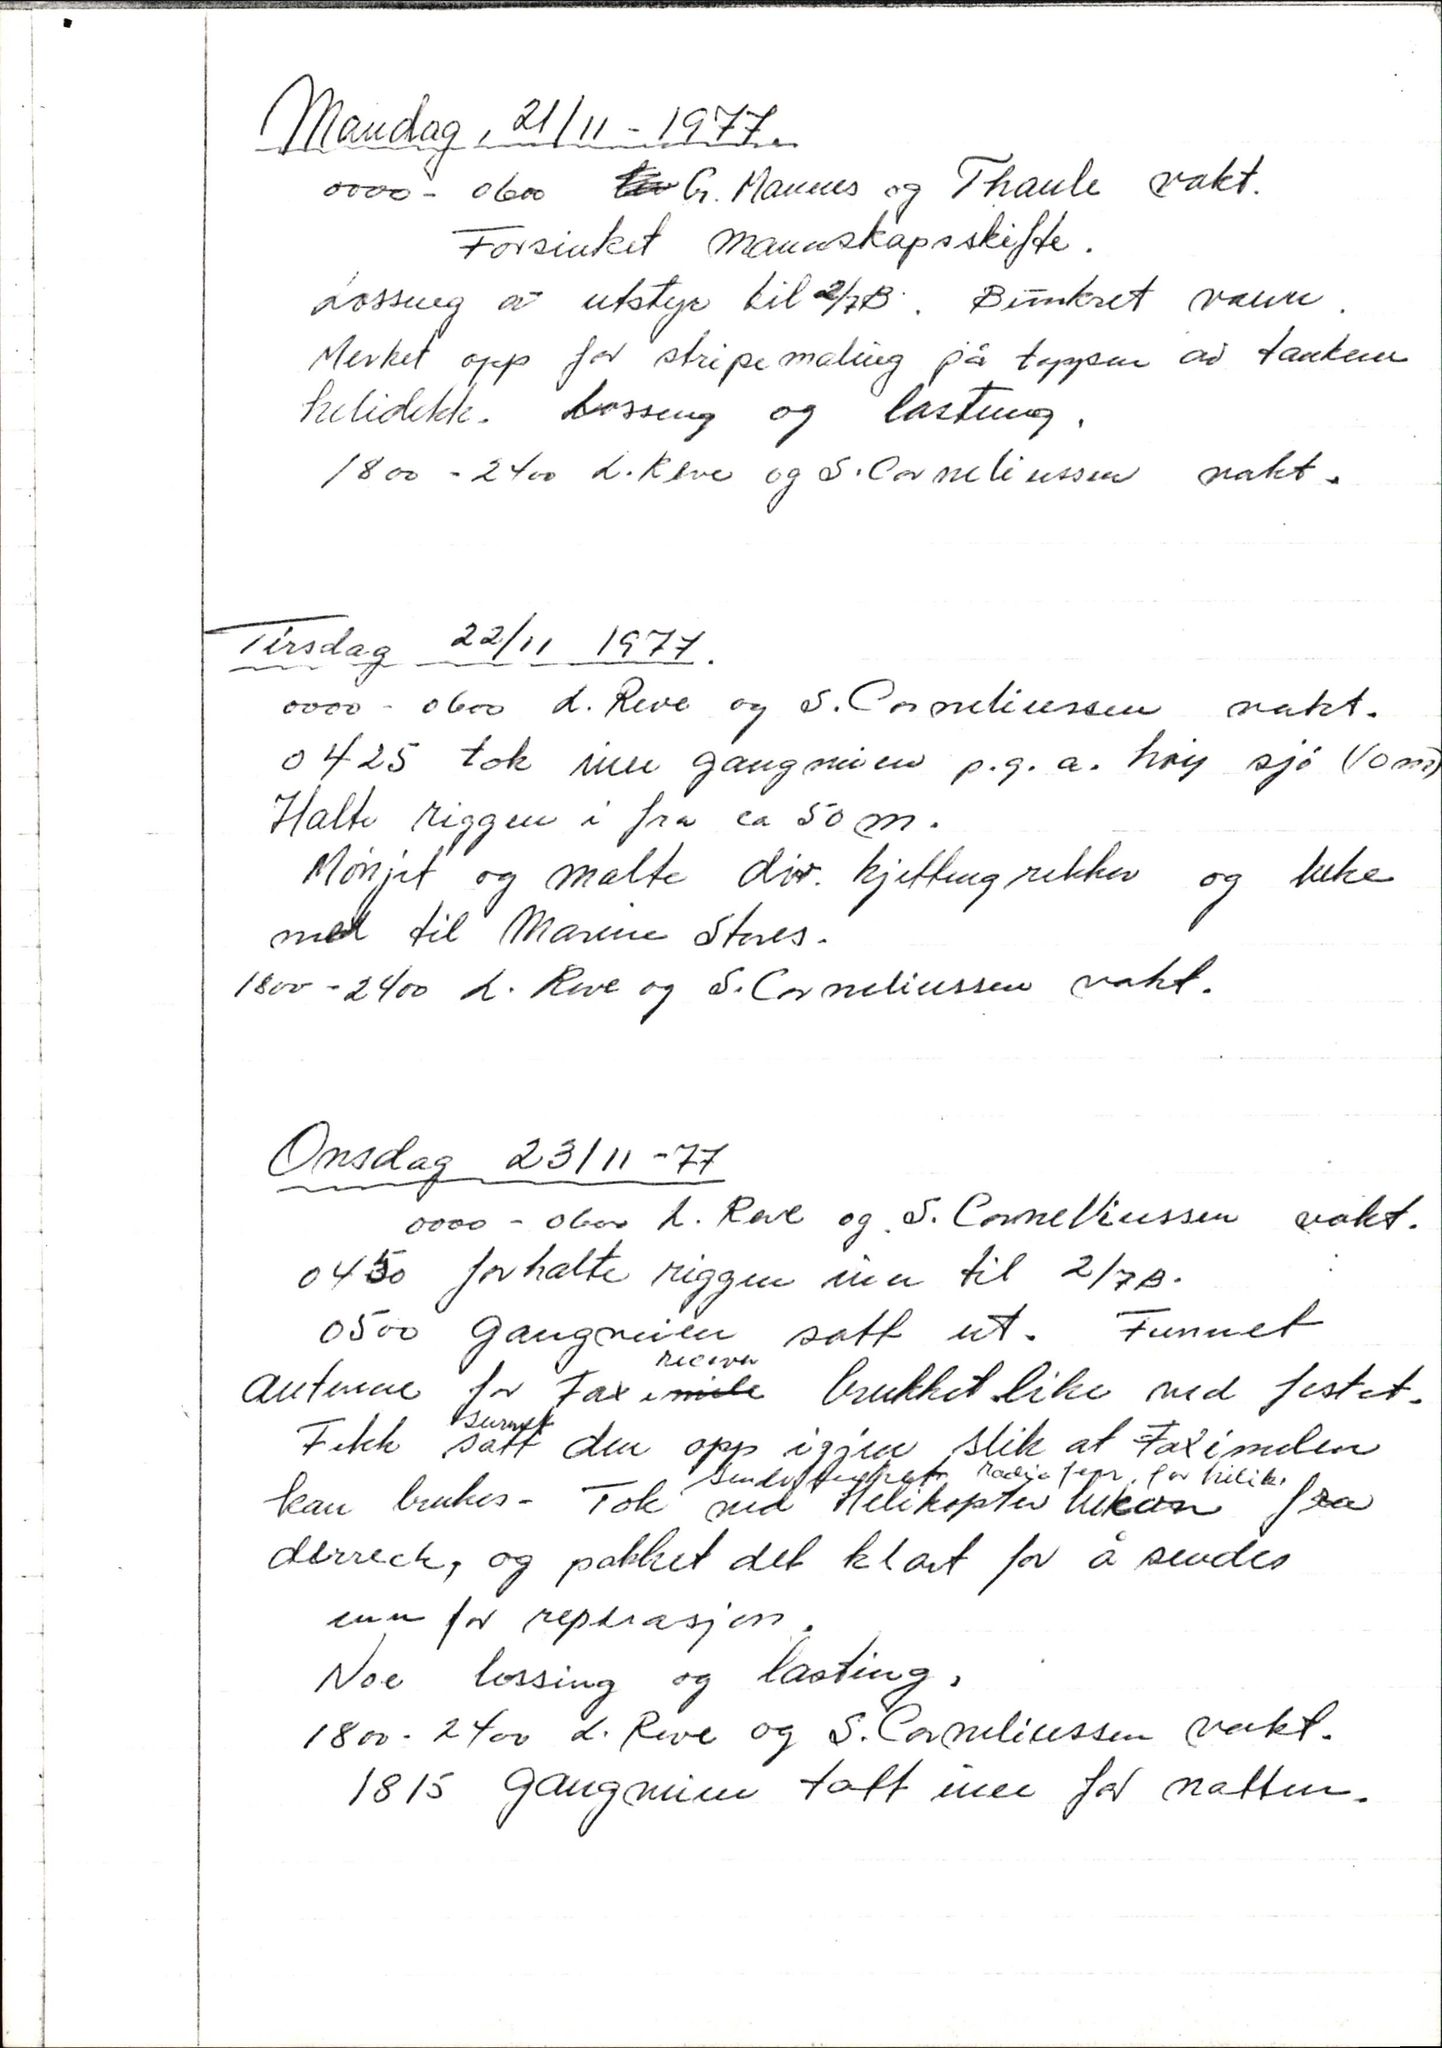 Mandag, 21/11 - 1977.
0000 - 0600 G. Mannes og Thaule vakt.
Forsinket mannskapsskifte.
Lossing av utstyr til 2/7B. Bunkret vann.
Merket opp for stripemaling på toppen av tanken
helidekk. Lossing og lasting.
1800 - 2400 L. Reve og S. Corneliussen vakt.
Tirsdag 22/11 1977.
0000 - 0600 L. Reve og S. Corneliussen vakt.
0425 tok inn gangveien p.g.a. høy sjø (10 m)
Halte riggen i fra ca 50 m.
Mønjet og malte div. kjettingrekker og luke
ned til Marine Stores.
1800 - 2400 L. Reve og S. Corneliussen vakt.
Onsdag 23/11 - 77
0000 - 0600 L. Reve og S. Corneliussen vakt.
0430 forhalte riggen inn til 2/7B.
0500 gangveien satt ut. Funnet
receiver
antenne for Faximile brukket like ved festet.
surret
Fekk satt den opp igjen slik at Faximilen
radio for helik.
kan brukes - Tok ned Helikopter fra
derreck, og pakket det klart for å sendes
inn for reperasjon.
Noe lossing og lasting.
1800 - 2400 L. Reve og S. Corneliussen vakt.
1815 gangveien tatt inn for natten.